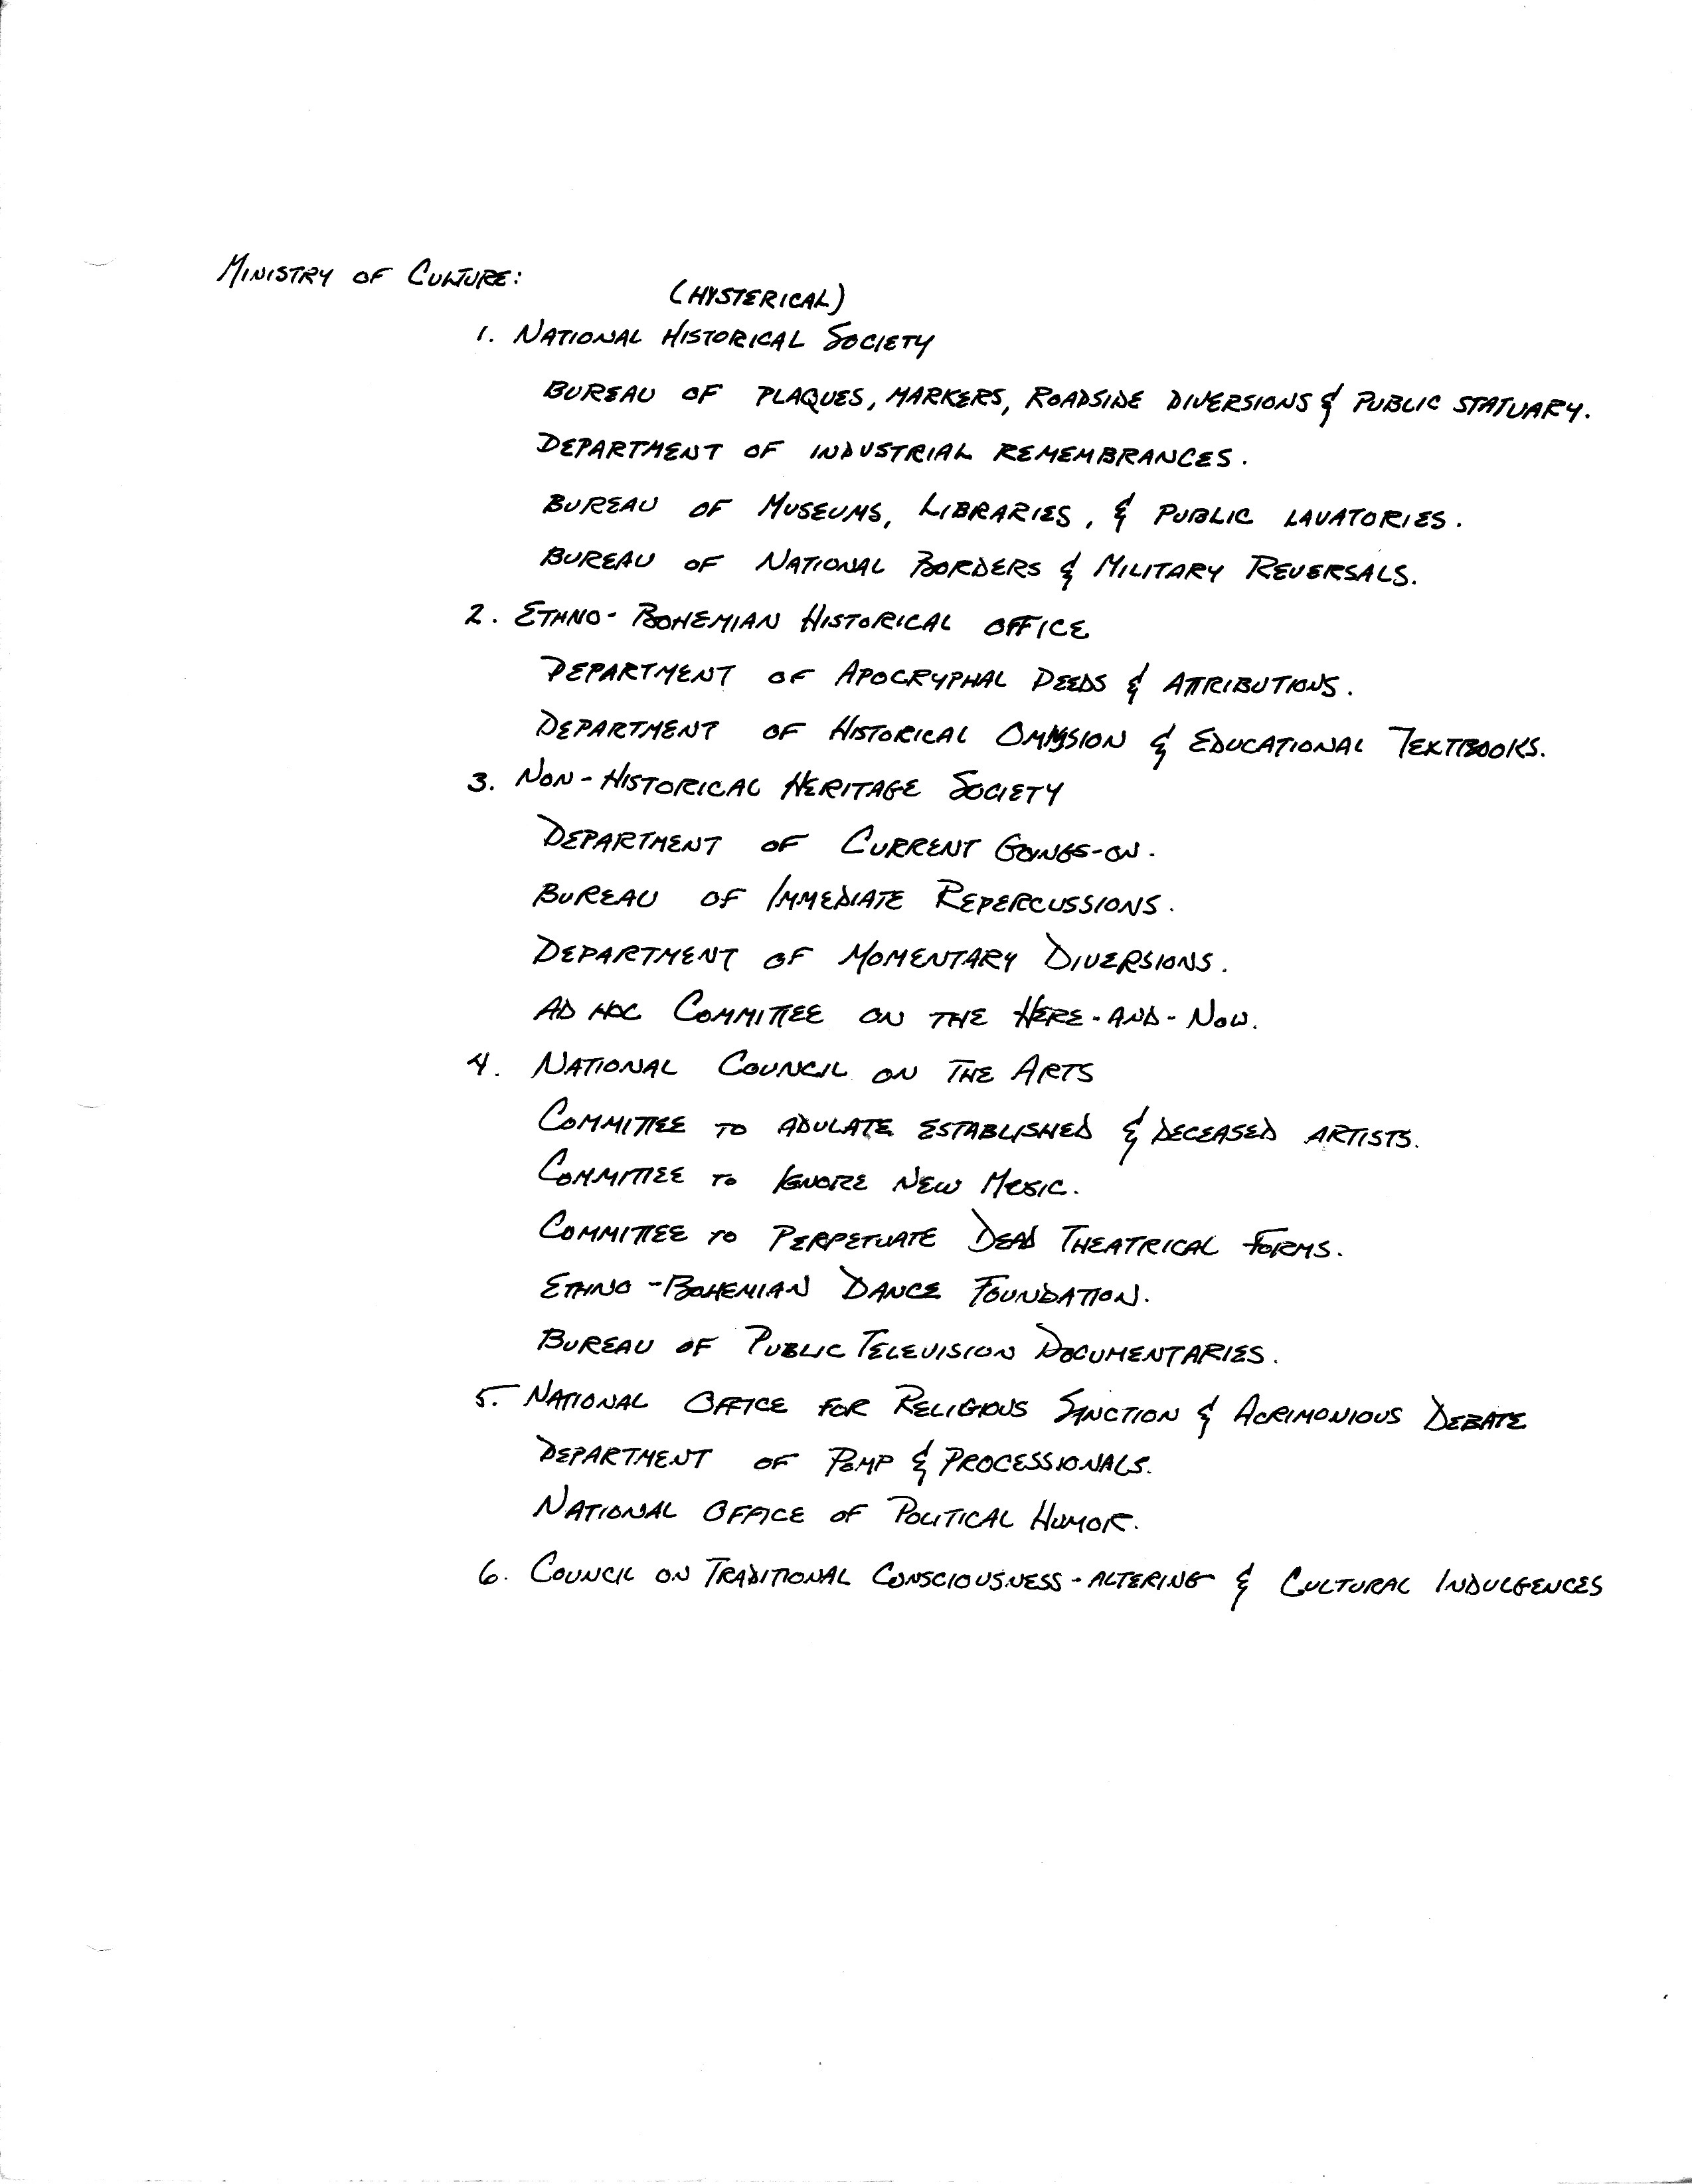 MINISTRY OF CULTURE:
(HYSTERICAL)
1. NATIONAL HISTORICAL SOCIETY
BUREAU OF PLAQUES, MARKERS, ROADSIDE DIVERSIONS & PUBLIC STATUARY.
DEPARTMENT OF INDUSTRIAL REMEMBRANCES.
BUREAU OF MUSEUMS, LIBRARIES, & PUBLIC LAVATORIES.
BUREAU OF NATIONAL BORDERS & MILITARY REVERSALS.
2. ETHNO-BOHEMIAN HISTORICAL OFFICE
DEPARTMENT OF APOCRYPHAL DEEDS & ATTRIBUTIONS.
DEPARTMENT OF HISTORICAL OMISSION & EDUCATIONAL TEXTBOOKS.
3. NON-HISTORICAL HERITAGE SOCIETY
DEPARTMENT OF CURRENT GOINGS-ON.
BUREAU OF IMMEDIATE REPERCUSSIONS.
DEPARTMENT OF MOMENTARY DIVERSIONS.
AD HOC COMMITTEE ON THE HERE-AND-NOW.
4. NATIONAL COUNCIL ON THE ARTS
COMMITTEE TO ADULATE ESTABLISHED & DECEASED ARTISTS.
COMMITTEE TO IGNORE NEW MUSIC.
COMMITTEE TO PERPETUATE DEAD THEATRICAL FORMS.
ETHNO-BOHEMIAN DANCE FOUNDATION.
BUREAU OF PUBLIC TELEVISION DOCUMENTARIES.
5. NATIONAL OFFICE FOR RELIGIOUS SANCTION & ACRIMONIOUS DEBATE
DEPARTMENT OF POMP & PROCESSIONALS.
NATIONAL OFFICE OF POLITICAL HUMOR.
6. COUNCIL ON TRADITIONAL CONSCIOUSNESS-ALTERING & CULTURAL INDULGENCES